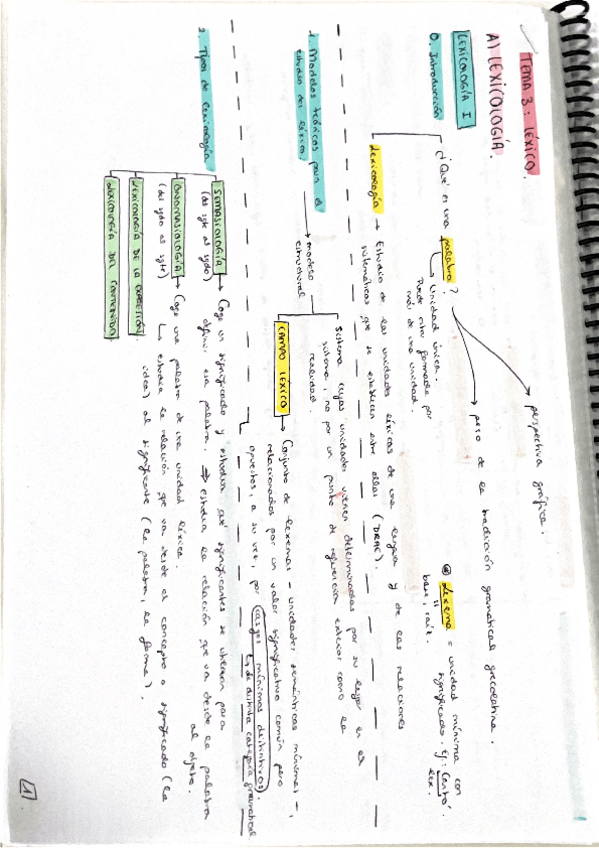 TEMA 3: LÉXICO.
A) LEXICOLOGÍA.
LEXICOLOGÍA I
0. Introducción
¿Qué es una palabra?
perspectiva gráfica.
peso de la tradición gramatical grecolatina.
Unidad única.
Puede estar formada por
más de una unidad.
Lexema = unidad mínima con
significado. Ej: Cantó.
lex.
base, raíz.
Lexicología → Estudio de las unidades léxicas de una lengua y de las relaciones
sistemáticas que se establecen entre ellas (DRAE).
1. Modelos teóricos para el
estudio del léxico.
modelo
estructural
Sistema cuyas unidades vienen determinadas por su lugar en el
sistema, no por un punto de referencia exterior como la
realidad.
CAMPO LÉXICO → Conjunto de lexemas - unidades semánticas mínimas -,
relacionados por un valor significativo común pero
opuestos, a su vez, por rasgos mínimos distintivos.
de distinta categoría gramatical.
2. Tipos de Lexicología
SEMASIOLOGÍA → Coge un significado y estudia qué significantes se utilizan para
(del sgte al sgdo) definir esa palabra. ⇒ estudia la relación que va desde la palabra
al objeto.
ONOMASIOLOGÍA → Coge una palabra de una unidad léxica.
(del sgdo al sgte) ↳ estudia la relación que va desde el concepto o significado (la
idea) al significante (la palabra, la forma).
LEXICOLOGÍA DE LA EXPRESIÓN.
LEXICOLOGÍA DEL CONTENIDO
1